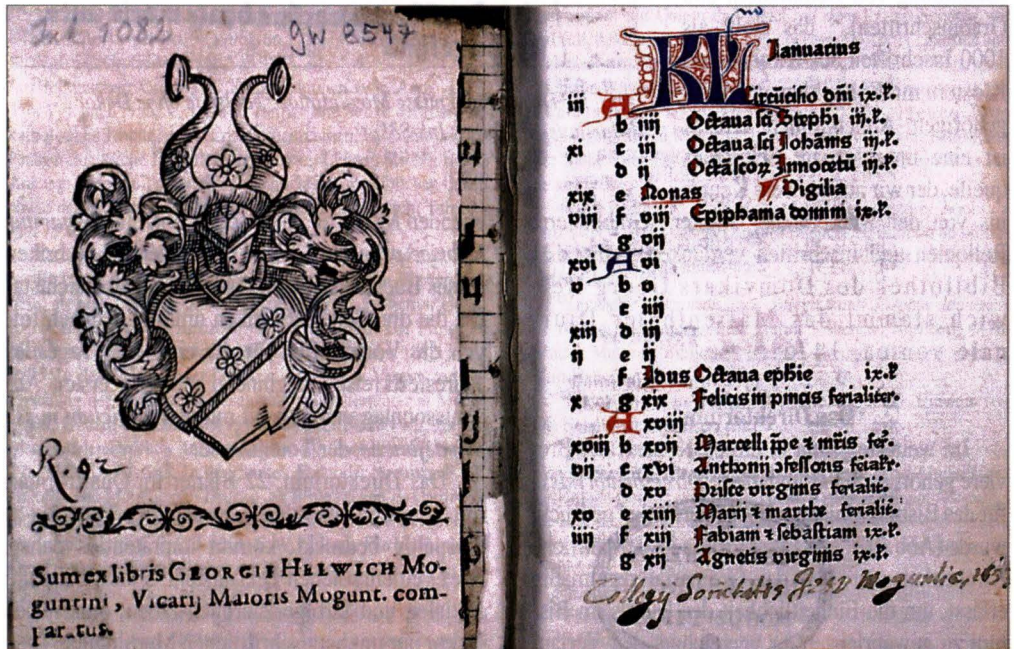 Ink 1082
gw 8547
R. 92
Sum ex libris GEORGII HELWICH Mo-
guntini, Vicarij Maioris Mogunt. com-
paratus.
KL Ianuarius
iij A Circũcisio dñi ix.l'.
b iiij Octaua sci Stephi iij.l'.
xi c iij Octaua sci Iohãnis iij.l'.
d ij Octã scõꝝ Innocẽtũ iij.l'.
xix e Nonas Vigilia
viij f viij Epiphania domini ix.l'.
g vij
xvi A vi
v b v
c iiij
xiij d iij
ij e ij
f Idus Octaua ephie ix.l'
x g xix Felicis in pincis ferialiter.
A xviij
xviij b xvij Marcelli ꝑpe ⁊ mr̃is fer'.
vij c xvi Anthonij ɔfessoris
d xv Prisce virginis ferialit'.
xv e xiiij Marij ⁊ marthe ferialit'.
iiij f xiij Fabiani ⁊ sebastiani ix.l'.
g xij Agnetis virginis ix.l'.
Collegij Societatis Jesu Moguntiae,